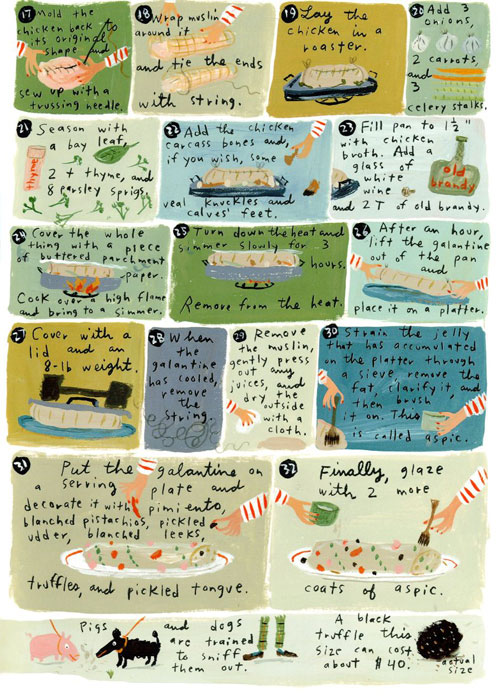 17 Mold the
chicken back to
its original
shape and
sew up with a
trussing needle.
18 Wrap muslin
around it
and tie the ends
with string.
19 Lay the
chicken in a
roaster.
20 Add 3
onions,
2 carrots,
and
3
celery stalks.
21 Season with
a bay leaf,
2 t thyme, and
8 parsley sprigs.
thyme
22 Add the chicken
carcass bones and,
if you wish, some
veal knuckles and
calves' feet.
23 Fill pan to 1 1/2"
with chicken
broth. Add a
glass of
white
wine
and 2 T of old brandy.
old
brandy
24 Cover the whole
thing with a piece
of buttered parchment
paper.
Cook over a high flame
and bring to a simmer.
25 Turn down the heat and
simmer slowly for 3
hours.
Remove from the heat.
26 After an hour,
lift the galantine
out of the pan
and
place it on a platter.
27 Cover with a
lid and an
8-lb weight.
28 When
the
galantine
has cooled,
remove
the
string.
29 Remove
the muslin,
gently press
out any
juices, and
dry the
outside
with a
cloth.
30 Strain the jelly
that has accumulated
on the platter through
a sieve, remove the
fat, clarify it, and
then brush
it on. This
is called aspic.
31 Put the galantine on
a serving plate and
decorate it with pimiento,
blanched pistachios, pickled
udder, blanched leeks,
truffles, and pickled tongue.
32 Finally, glaze
with 2 more
coats of aspic.
Pigs and dogs
are trained
to sniff
them out.
A black
truffle this
size can cost
about $40.
actual
size